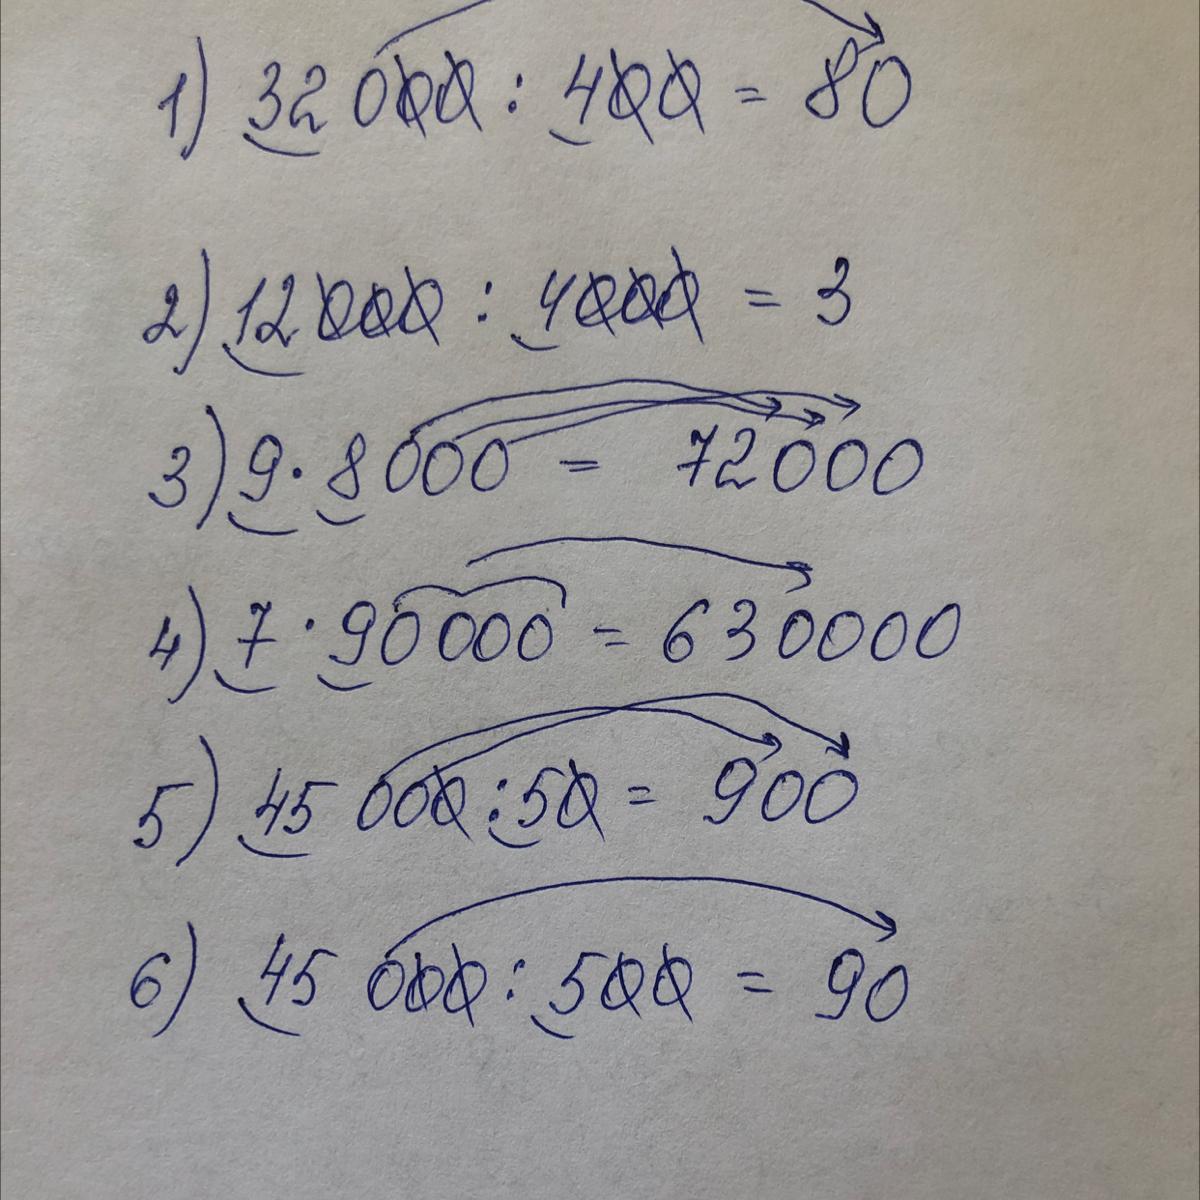 1) 32 000 : 400 = 80
2) 12000 : 4000 = 3
3) 9 · 8000 = 72000
4) 7 · 90000 = 630000
5) 45 000 : 50 = 900
6) 45 000 : 500 = 90